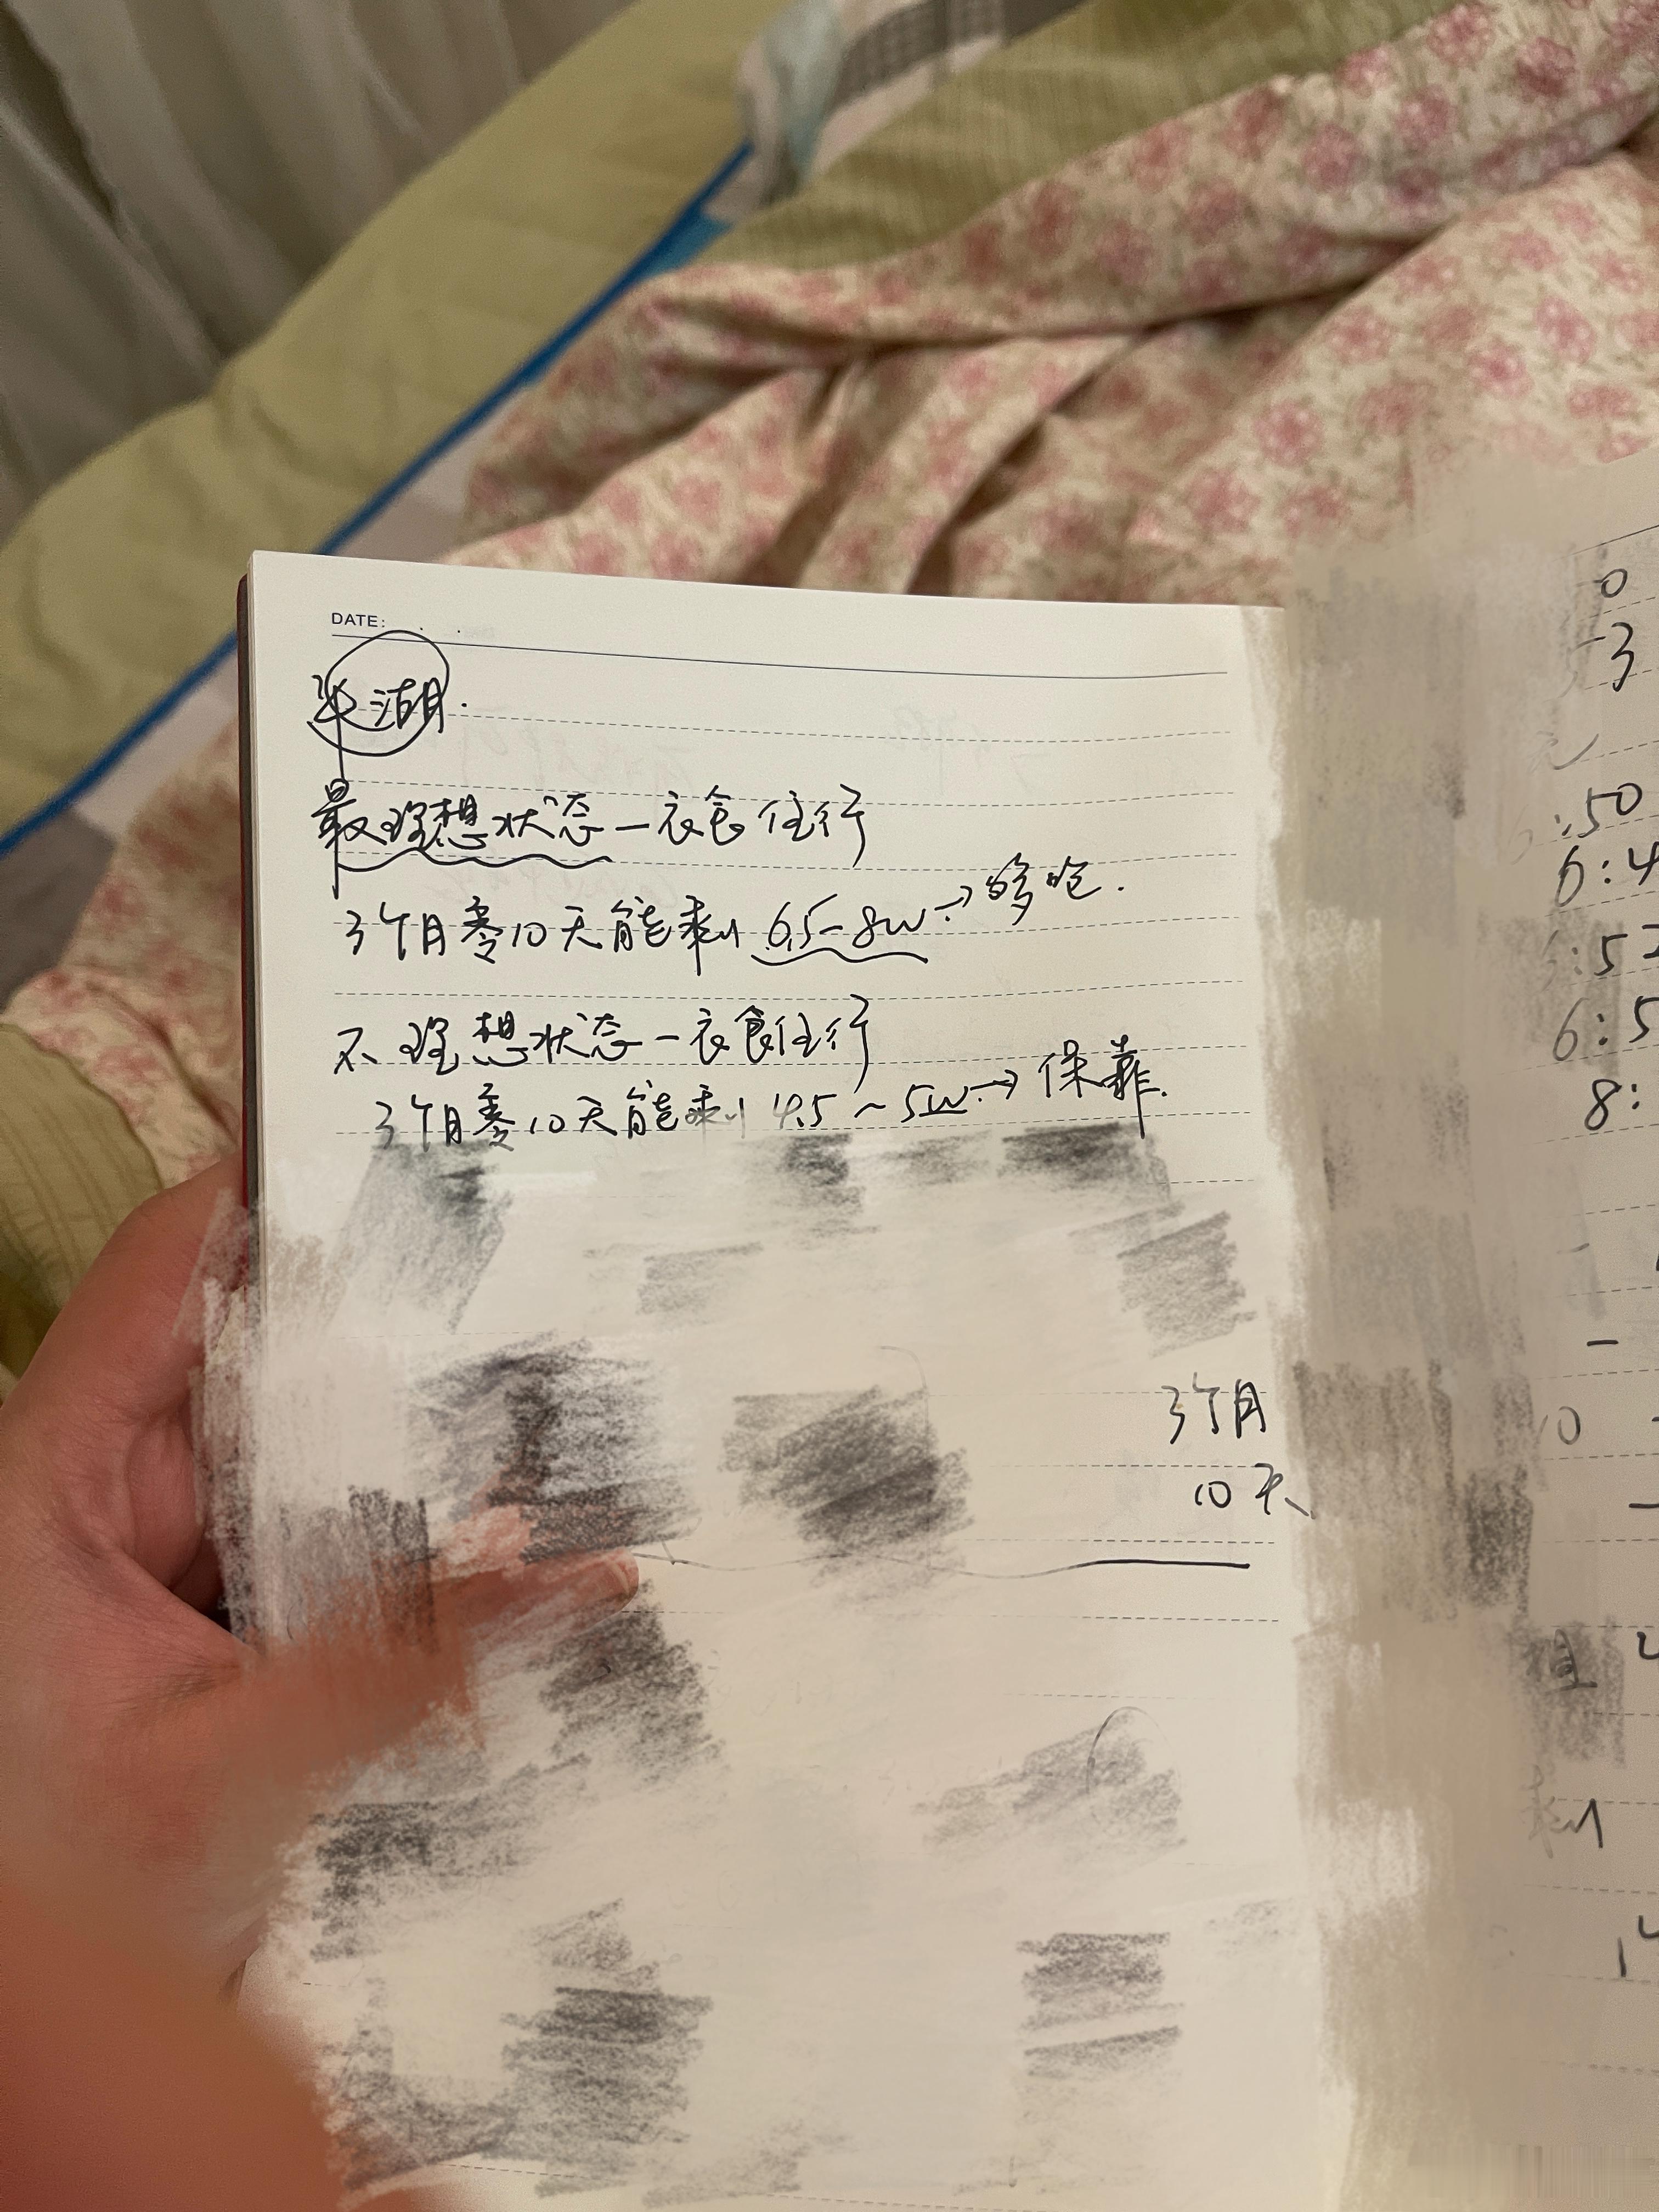 DATE:
平湖.
最理想状态—衣食住行
3个月零10天能剩 6.5-8w→够呛.
不理想状态—衣食住行
3个月零10天能剩 4.5~5w→保靠.
3个月
10天
0
3
:50
6:4
:52
6:5
8:
10
剩
14